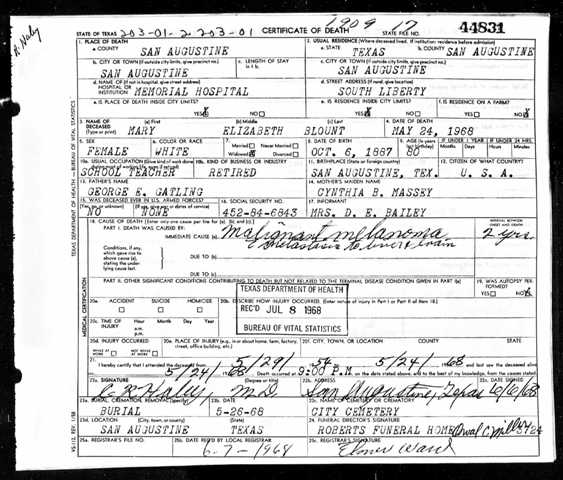 1909 17
STATE OF TEXAS 203-01-2 203-01 CERTIFICATE OF DEATH STATE FILE NO. 44831
1. PLACE OF DEATH 2. USUAL RESIDENCE (Where deceased lived. If institution: residence before admission)
a. COUNTY SAN AUGUSTINE a. STATE TEXAS b. COUNTY SAN AUGUSTINE
b. CITY OR TOWN (If outside city limits, give precinct no.) c. LENGTH OF STAY c. CITY OR TOWN (If outside city limits, give precinct no.)
SAN AUGUSTINE in 1 b. SAN AUGUSTINE
d. NAME OF (If not in hospital, give street address) d. STREET ADDRESS (If rural, give location)
HOSPITAL OR INSTITUTION MEMORIAL HOSPITAL SOUTH LIBERTY
e. IS PLACE OF DEATH INSIDE CITY LIMITS? e. IS RESIDENCE INSIDE CITY LIMITS? f. IS RESIDENCE ON A FARM?
YES NO YES NO YES NO
3. NAME OF DECEASED (a) First (b) Middle (c) Last 4. DATE OF DEATH
(Type or print) MARY ELIZABETH BLOUNT MAY 24, 1968
5. SEX 6. COLOR OR RACE 7. Married Never Married 8. DATE OF BIRTH 9. AGE (In years last birthday) IF UNDER 1 YEAR IF UNDER 24 HRS.
FEMALE WHITE Widowed Divorced OCT. 6, 1887 80 Months Days Hours Min.
10a. USUAL OCCUPATION (Give kind of work done 10b. KIND OF BUSINESS OR INDUSTRY 11. BIRTHPLACE (State or foreign country) 12. CITIZEN OF WHAT COUNTRY?
SCHOOL TEACHER RETIRED SAN AUGUSTINE, TEX. U. S. A.
13. FATHER'S NAME 14. MOTHER'S MAIDEN NAME
GEORGE E. GATLING CYNTHIA B. MASSEY
15. WAS DECEASED EVER IN U.S. ARMED FORCES? 16. SOCIAL SECURITY NO. 17. INFORMANT
NO NONE 452-84-6843 MRS. D. E. BAILEY
18. CAUSE OF DEATH [Enter only one cause per line for (a), (b) and (c).] INTERVAL BETWEEN ONSET AND DEATH
PART I. DEATH WAS CAUSED BY:
IMMEDIATE CAUSE (a) Malignant melanoma 2 yrs.
metastasis to liver & brain
Conditions, if any, which gave rise to above cause (a), stating the underlying cause last.
DUE TO (b)
DUE TO (c)
PART II. OTHER SIGNIFICANT CONDITIONS CONTRIBUTING TO DEATH BUT NOT RELATED TO THE TERMINAL DISEASE CONDITION GIVEN IN PART I(a) 19. WAS AUTOPSY PERFORMED?
YES NO
TEXAS DEPARTMENT OF HEALTH
REC'D JUL 8 1968
BUREAU OF VITAL STATISTICS
20a. ACCIDENT SUICIDE HOMICIDE 20b. DESCRIBE HOW INJURY OCCURRED. (Enter nature of injury in Part I or Part II of item 18.)
20c. TIME OF INJURY Hour Month Day Year
a.m.
p.m.
20d. INJURY OCCURRED 20e. PLACE OF INJURY (e.g. in or about home, farm, factory, street, office building, etc.) 20f. CITY, TOWN, OR LOCATION COUNTY STATE
WHILE AT WORK NOT WHILE AT WORK
21. I hereby certify that I attended the deceased from 5/29 54 5/24 68 and last saw the deceased alive
5/24 68 Death occurred at 9:00 P.M. on the date stated above, and to the best of my knowledge, from the causes stated.
22a. SIGNATURE (Degree or title) 22b. ADDRESS 22c. DATE SIGNED
Haley M.D. San Augustine, Texas 6/6/68
23a. BURIAL, CREMATION, REMOVAL 23b. DATE 23c. NAME OF CEMETERY OR CREMATORY
BURIAL 5-26-68 CITY CEMETERY
23d. LOCATION (City, town, or county) (State) 24. FUNERAL DIRECTOR'S SIGNATURE
SAN AUGUSTINE TEXAS ROBERTS FUNERAL HOME
25a. REGISTRAR'S FILE NO. 25b. DATE REC'D BY LOCAL REGISTRAR 25c. REGISTRAR'S SIGNATURE
6-7-1968 Elmer Ward
TEXAS DEPARTMENT OF HEALTH - BUREAU OF VITAL STATISTICS
MEDICAL CERTIFICATION